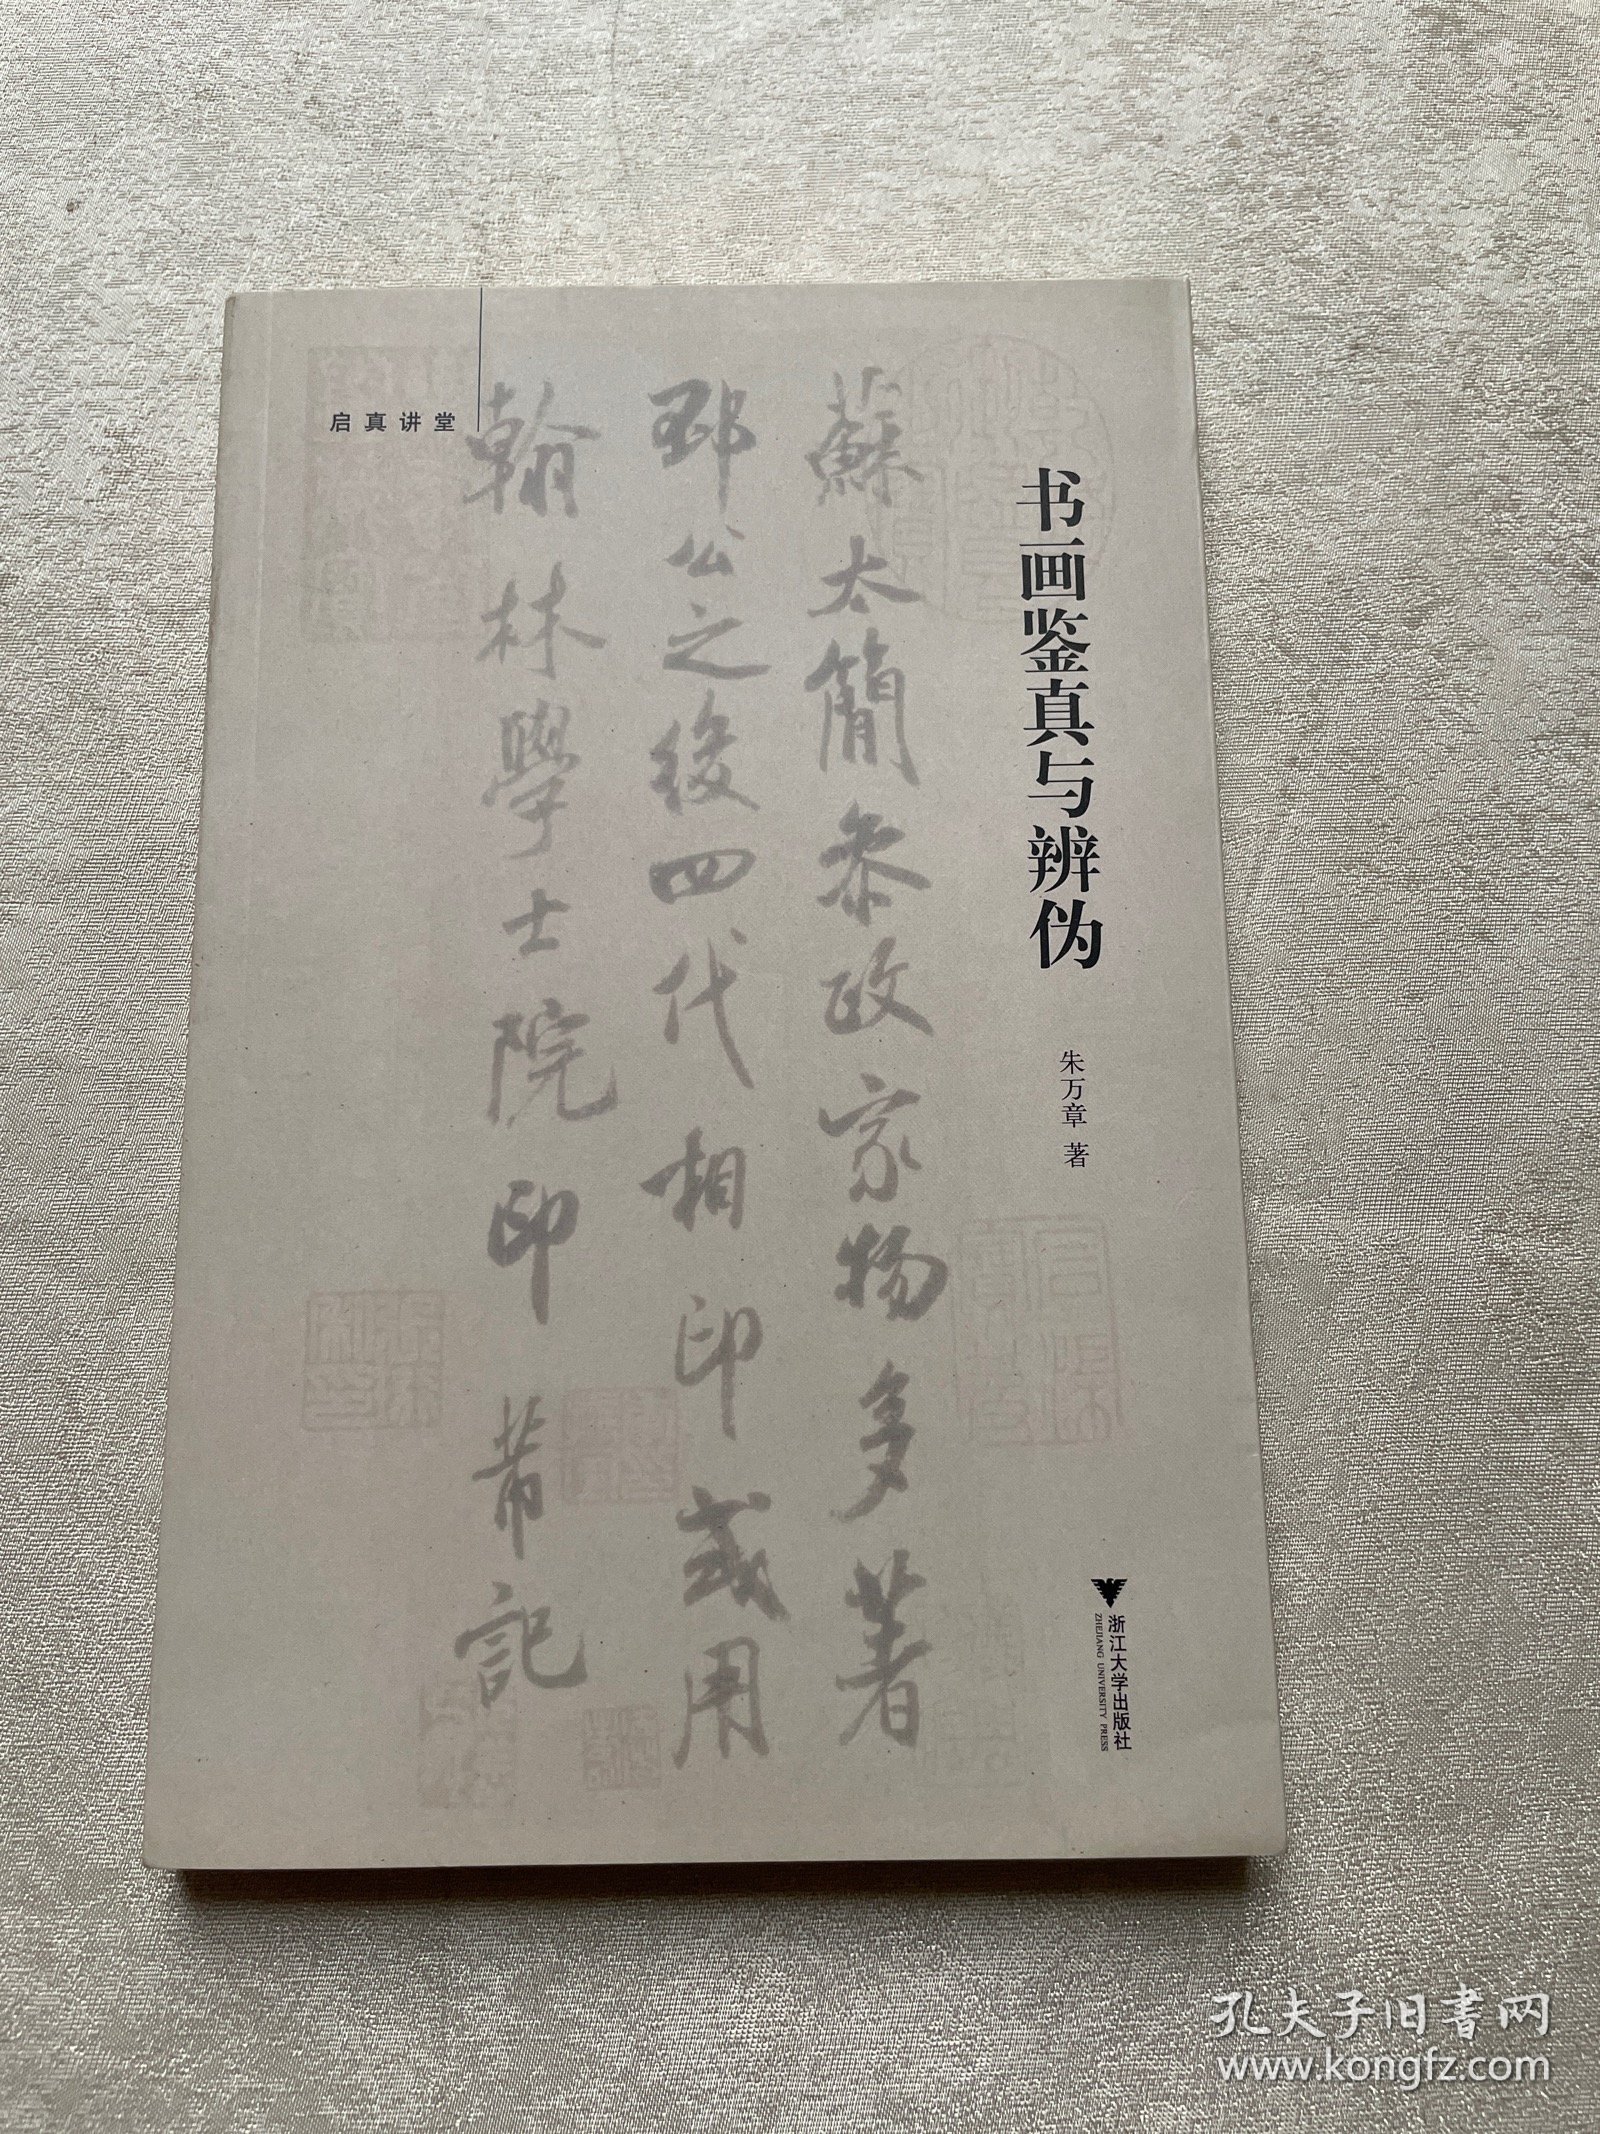 启真讲堂
书画鉴真与辨伪
朱万章 著
蘇太簡參政家物多著
邳公之後四代相印或用
翰林學士院印芾記
浙江大学出版社
ZHEJIANG UNIVERSITY PRESS
孔夫子旧书网
www.kongfz.com